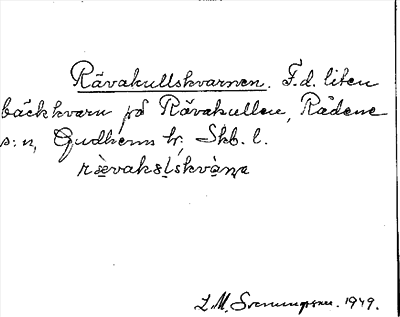 Rävakullskvarnen. F.d. liten
bäckkvarn på Rävakullen, Rådene
s:n, Gudhems hr, Skb. l.
L.M. Svenungsson. 1949.